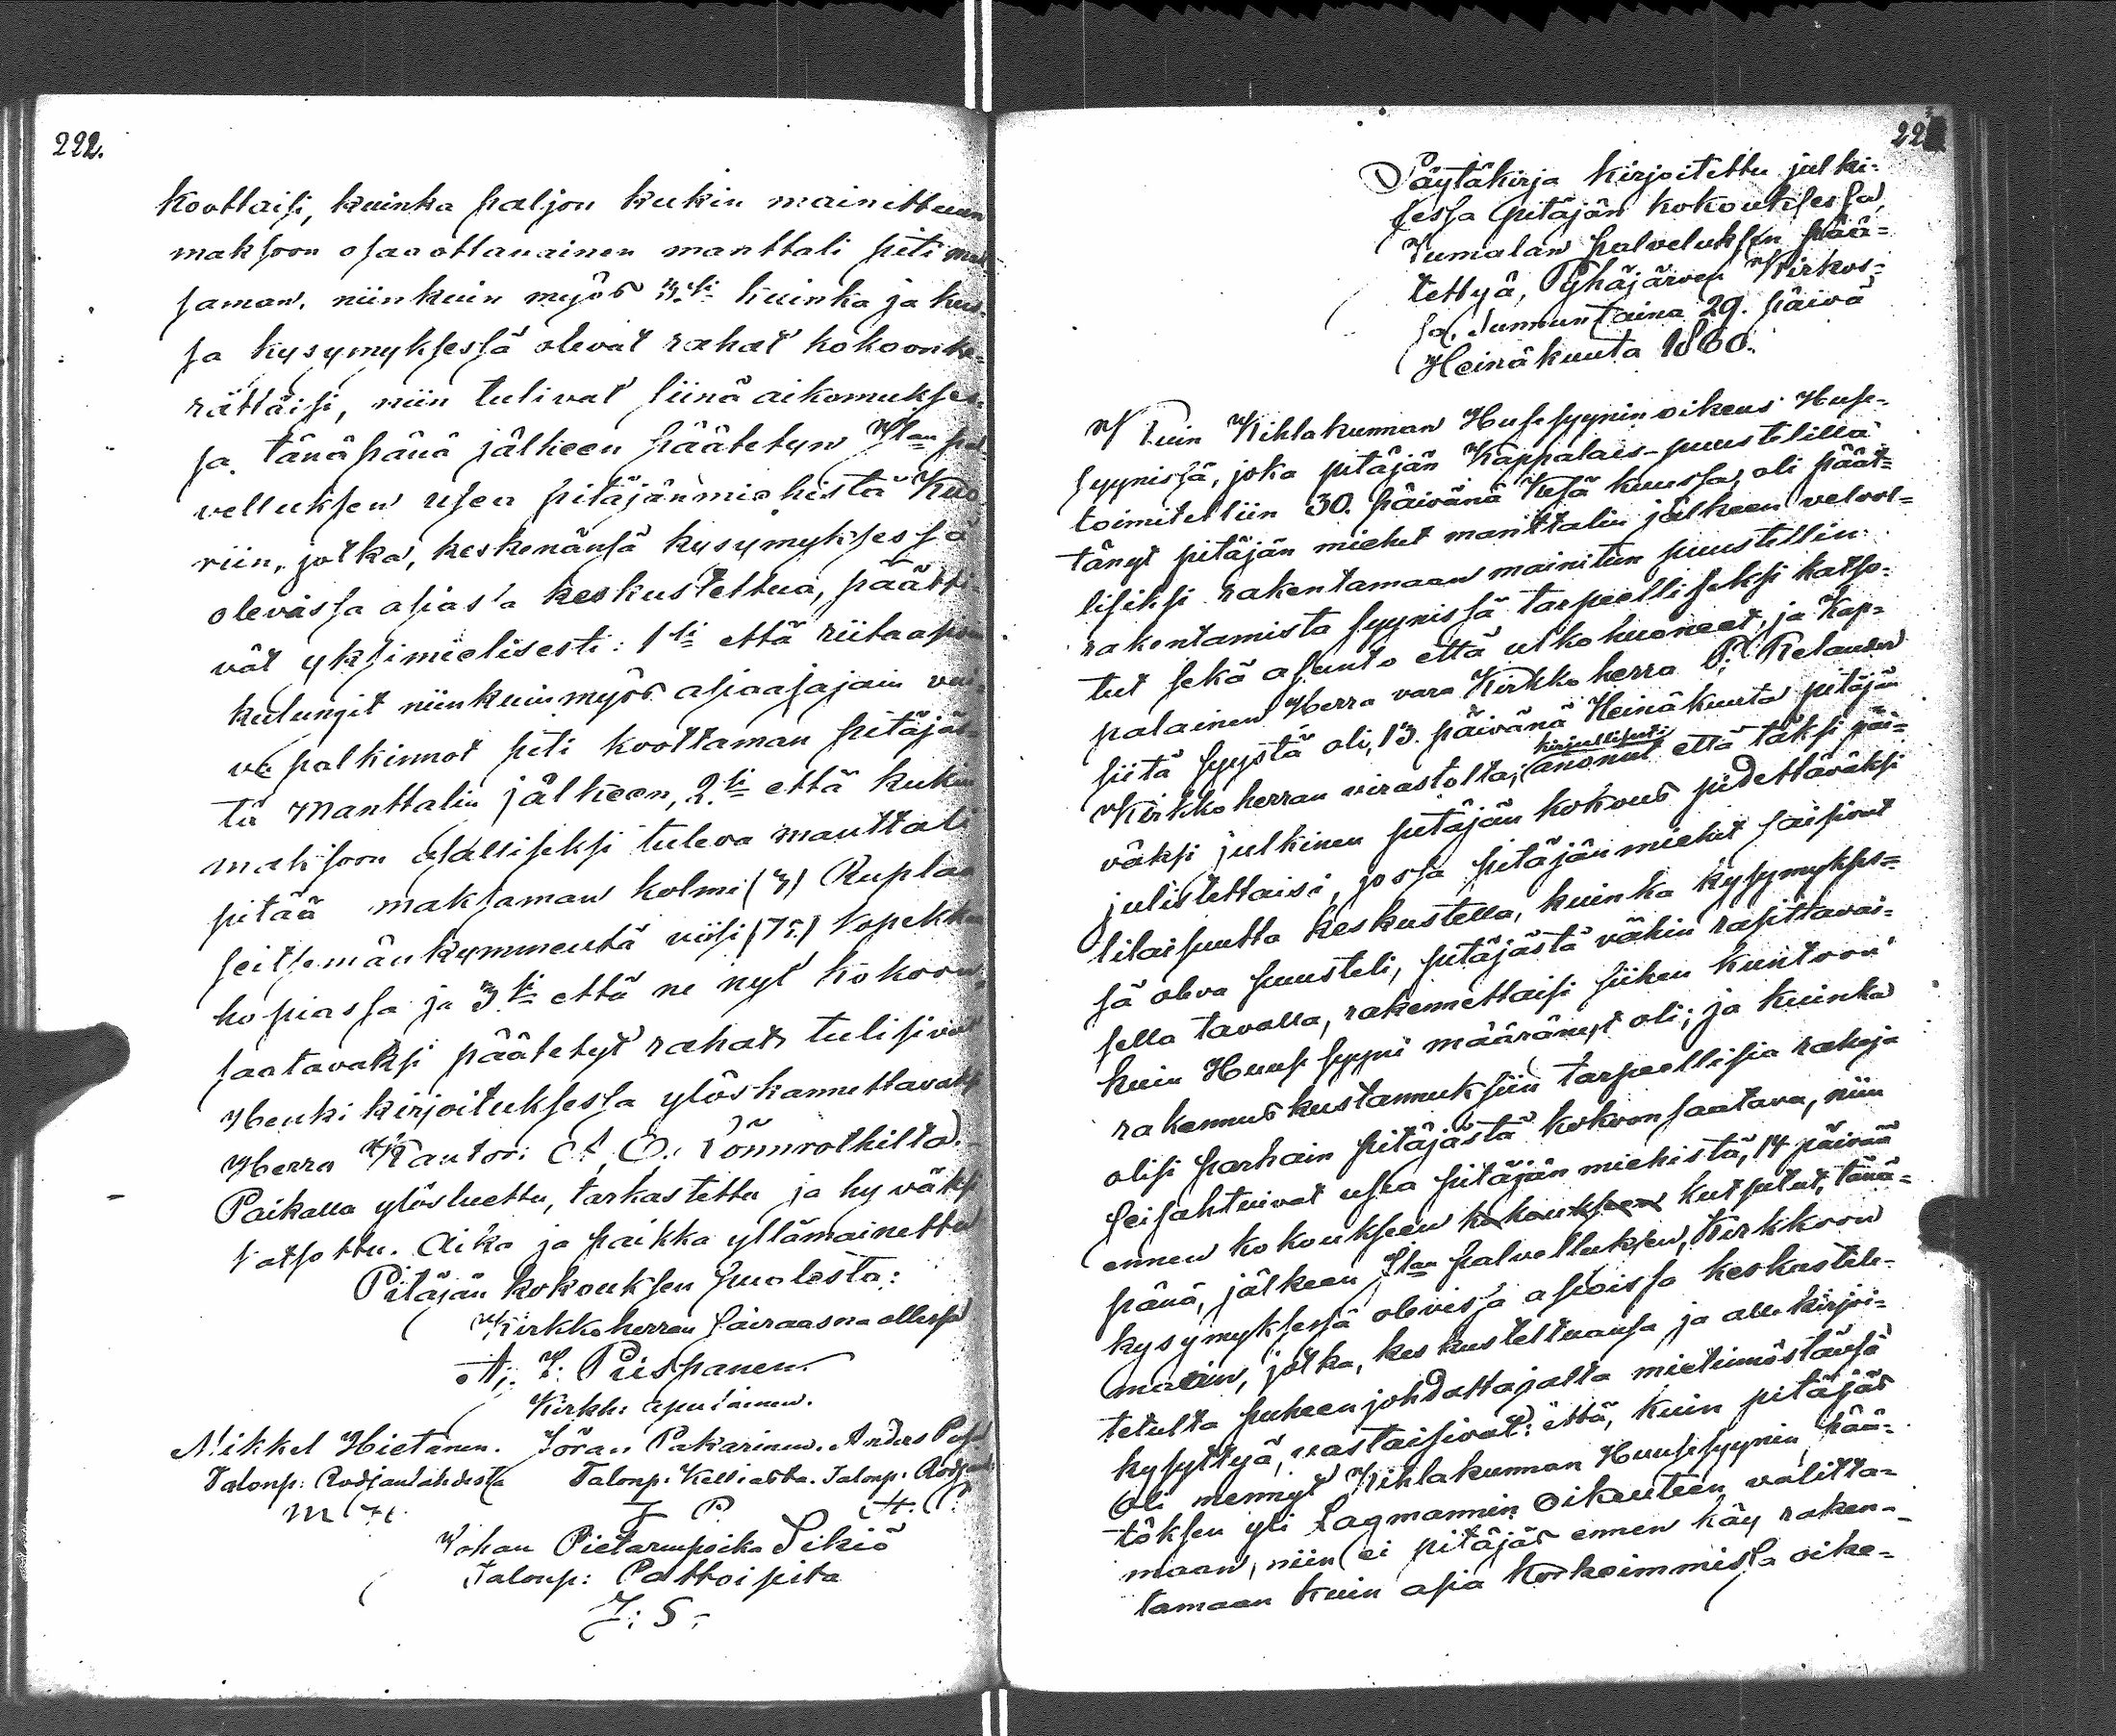 222.
koottaisi, kuinka paljon kukin mainittuun
maksoon osaaottavainen manttali piti mak
saman, niinkuin myös 3:ksi kuinka ja kus-
sa kysymyksessä olevat rahat kokoonke-
rättäisi, niin tulivat siinä aikomukses-
sa tänäpänä jälkeen päätetyn Jlan pal
velluksen usea pitäjänmiehistä Kuo
riin, jotka, keskenänsä kysymyksessä
olevassa asias'a keskustettua, päätti-
vät yksimielisesti: 1ksi että riitaasian
kulungit niinkuin myös asiaajajain vai-
va palkinnot piti koottaman pitäjäs-
tä Manttalin jälkeen, 2.ksi että kukin
maksoon osalliseksi tuleva manttali
pitää maksaman kolmi (3) Ruplaa
seitsemänkymmentä viisi (75.) kopekkaa
hopiassa ja 3.ksi että ne nyt kokoon
saatavaksi päätetyt rahat tulisivat
Henkikirjoituksessa ylöskannettavaksi
Herra Kantori A. O. Lönnrothilta.
Paikalla ylösluettu, tarkastettu ja hyväksi
katsottu. Aika ja paikka yllämainettu
Pitäjän kokouksen puolesta:
Kirkkoherran sairaasna ollessa
A. J. Piispanen
Kirkh: apulainen.
Mikkel Hietanen. Jöran Pakarinen. Anders
Talonp: Rodjanlahdesta Talonp. Kelliasta. Talonp.
M H. J P. A. P.
Johan Pietarinpoika Sikiö
Talonp: Pattoi pita
J: S:
22
Pöytäkirja kirjoitettu julki-
sessa pitäjän kokouksessa,
Jumalan palveluksen pää-
tettyä, Pyhäjärven Kirkos-
sa, Sunnuntaina 29. päivä
Heinäkuuta 1860.
Kuin Kihlakunnan Husesyynin oikeus Huse-
syynissä, joka pitäjän Kappalais-puustelilla
toimitettiin 30. päivänä Kesä kuussa, oli päät-
tänyt pitäjän miehet manttalin jälkeen velvol-
lisiksi rakentamaan mainitun puustellin
rakentamista syynissä tarpeelliseksi katso-
tut sekä asunto että ulkohuoneet, ja Kap-
palainen Herra vara Kirkkoherra P: Relander
siitä syystä oli, 13. päivänä Heinäkuuta pitäjän
Kirkkoherran virastolta, kirjallisesti anonut että täksi päi-
väksi julkinen pitäjän kokous pidettäväksi
julistettaisi, jossa pitäjänmiehet saisivat
tilaisuutta keskustella, kuinka kysymykses-
sä oleva puusteli, pitäjästä vähin rasittavai-
sella tavalla, rakennettaisi siihen kuntoon
kuin Huusesyyni määrännyt oli; ja kuinka
rakennuskustannuksiin tarpeellisia rahoja
olisi parhain pitäjästä kokoonsaatava, niin
seisahtuivat usea pitäjän miehistä, 14 päivää
ennen kokoukseen kokoukseen kutsutut, tänä-
pänä, jälkeen Jlan palvelluksen, Kirkkoon
kysymyksessä olevissa asioissa keskustele-
maan, jotka, keskusteltuansa ja allekirjoi-
tetulta puheenjohdattajalta mielinnöstänsä
kysyttyä, vastaisivat: että, kuin pitäjäs
oli mennyt Kihlakunnan Huusesyynin pää-
töksen yli Lagmannin Oikeuteen valitta-
maan, niin ei pitäjäs ennen käy raken-
tamaan kuin asia korkeimmissa oike-